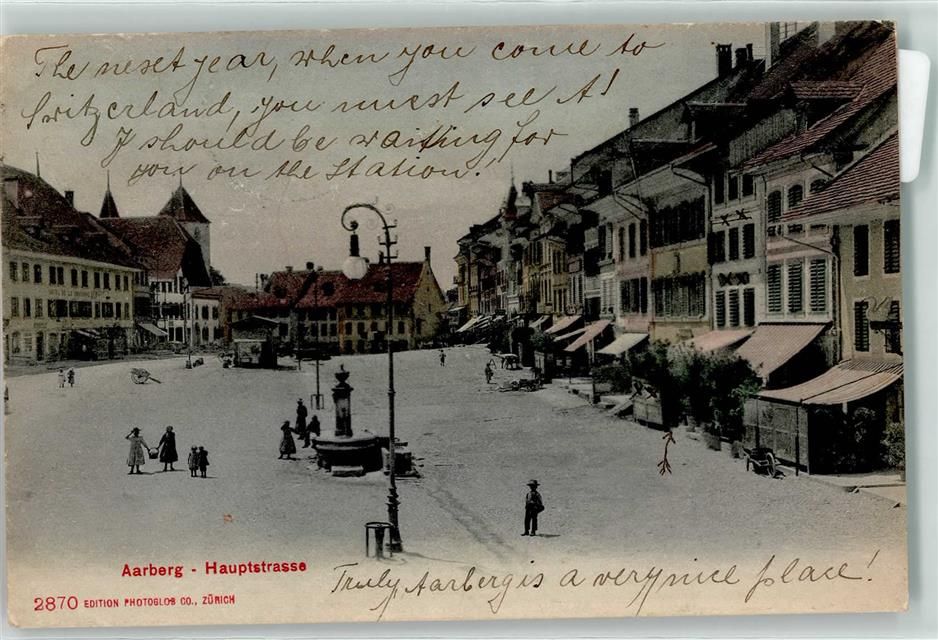 The next year, when you come to
Switzerland, you must see it!
I should be waiting for
you on the Station.
Aarberg - Hauptstrasse
2870 EDITION PHOTOGLOB CO., ZÜRICH
Truly, Aarberg is a very nice place!